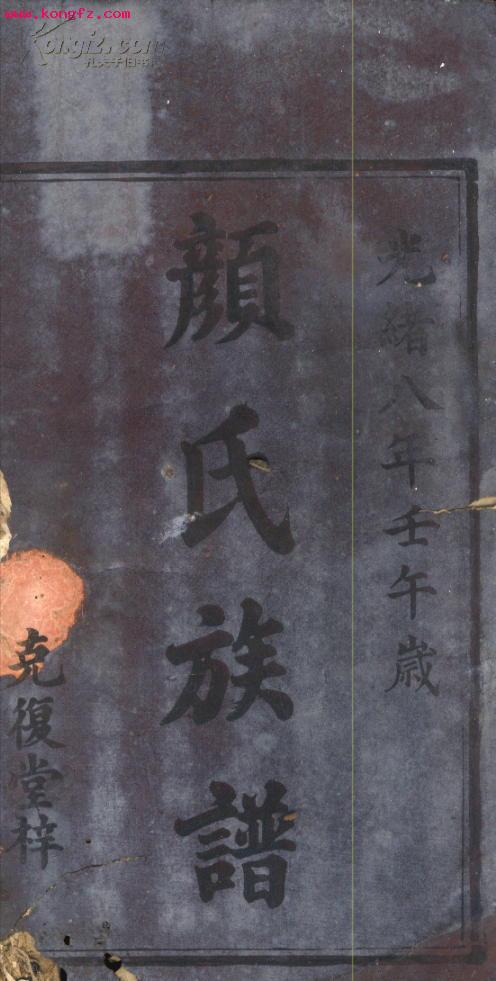 www.kongfz.com
Kongfz.com
孔夫子旧书网
光緒八年壬午歲
顏氏族譜
克復堂梓